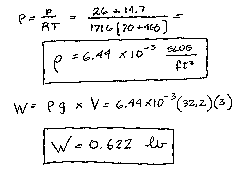 ρ = P/RT = 26 + 14.7 / 1716 [70 + 460] =
ρ = 6.44 × 10⁻³ SLUG/ft³
W = ρg × V = 6.44×10⁻³ (32.2)(3)
W = 0.622 lb